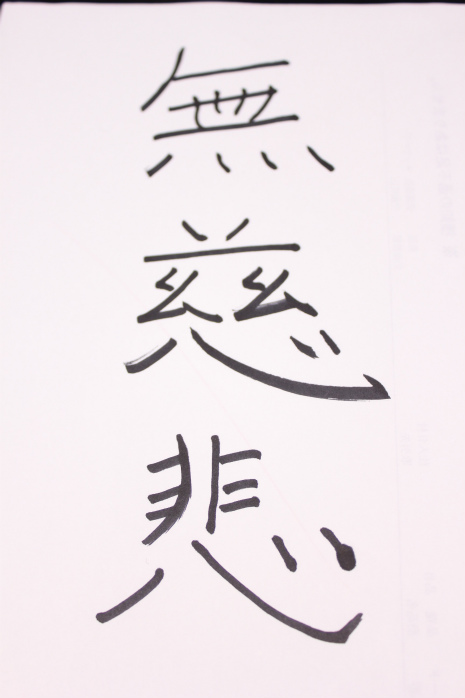 無慈悲